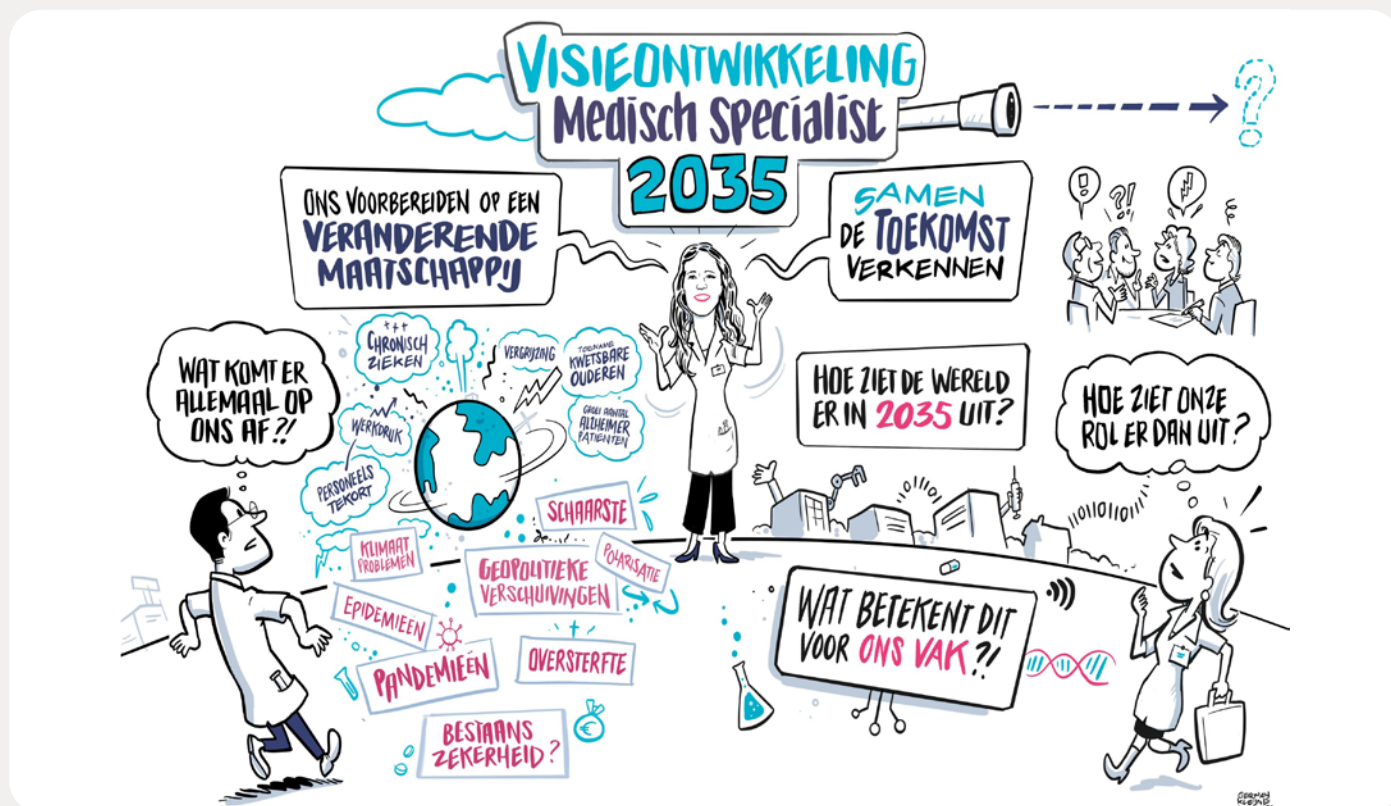 VISIEONTWIKKELING
MEDISCH SPECIALIST
2035
?
ONS VOORBEREIDEN OP EEN
VERANDERENDE
MAATSCHAPPIJ
SAMEN
DE TOEKOMST
VERKENNEN
!
?!
WAT KOMT ER
ALLEMAAL OP
ONS AF?!
+++
CHRONISCH
ZIEKEN
VERGRIJZING
TOENAME
KWETSBARE
OUDEREN
WERKDRUK
GROEI AANTAL
ALZHEIMER
PATIENTEN
PERSONEELS
TEKORT
HOE ZIET DE WERELD
ER IN 2035 UIT?
HOE ZIET ONZE
ROL ER DAN UIT?
SCHAARSTE
KLIMAAT
PROBLEMEN
GEOPOLITIEKE
VERSCHUIVINGEN
POLARISATIE
EPIDEMIEËN
PANDEMIEËN
OVERSTERFTE
BESTAANS
ZEKERHEID?
€
WAT BETEKENT DIT
VOOR ONS VAK?!